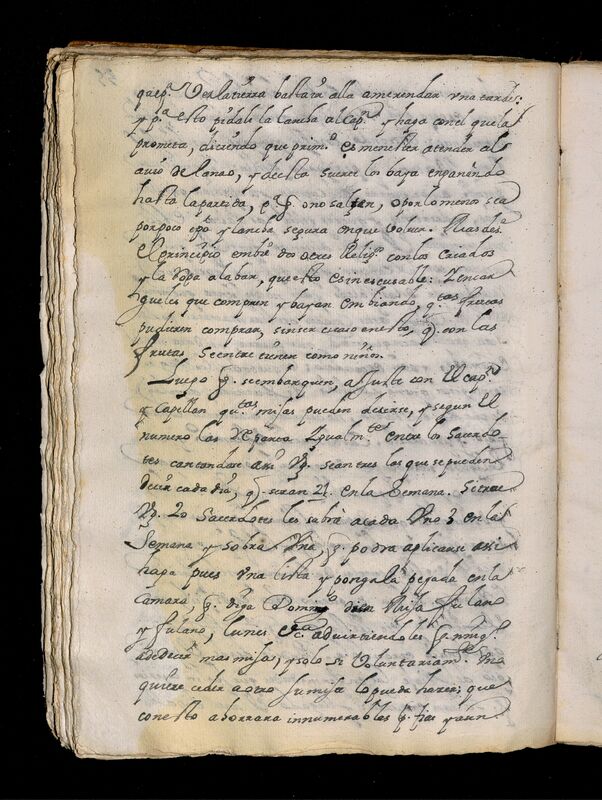 que p.ª ver la tierra basta ir alla a merendar una tarde:
y p.ª esto pidale la lancha al Cap.n y haga con el que la
prometa, diciendo que prim.º es menester atender al
avio de la nao, y de esta suerte los baya engañando
hasta la partida, q̃ o no salgan, o por lo menos sea
por poco tpo y lancha segura en que bolver. Mas des.e
el principio embie dos o tres Relig.s con los criados
y la ropa a labar, que esto es inescusable: Y encar
gueles que compren y bayan embiando q.tas frutas
pudieren comprar, sin ser escaso en esto, q̃ con las
frutas se entretienen como niños.
Luego q̃ se embarquen, ajuste con el Cap.n
y Capellan qu.tas misas pueden decirse, y segun el
numero las reparta igualm.te entre los Sacerdo
tes cantandose assi Vg. sean tres las que se pueden
decir cada dia, q̃ seran 21. en la Semana. Si trae
Vg. 20 Sacerdotes les sabrà a cada uno 1 en la
Semana y sobra una, q̃ podra aplicarse assi
haga pues una lista y pongala pegada en la
Camara, q̃ diga Doming.o dicen Misa fulano
y fulano, lunes &c.a advirtiendoles q̃ ning.o
a de decir mas misa, y solo si voluntariam.te uno
quiere ceder a otro su misa lo pueda hacer; que
con esto ahorrara innumerables q̃jas y aun